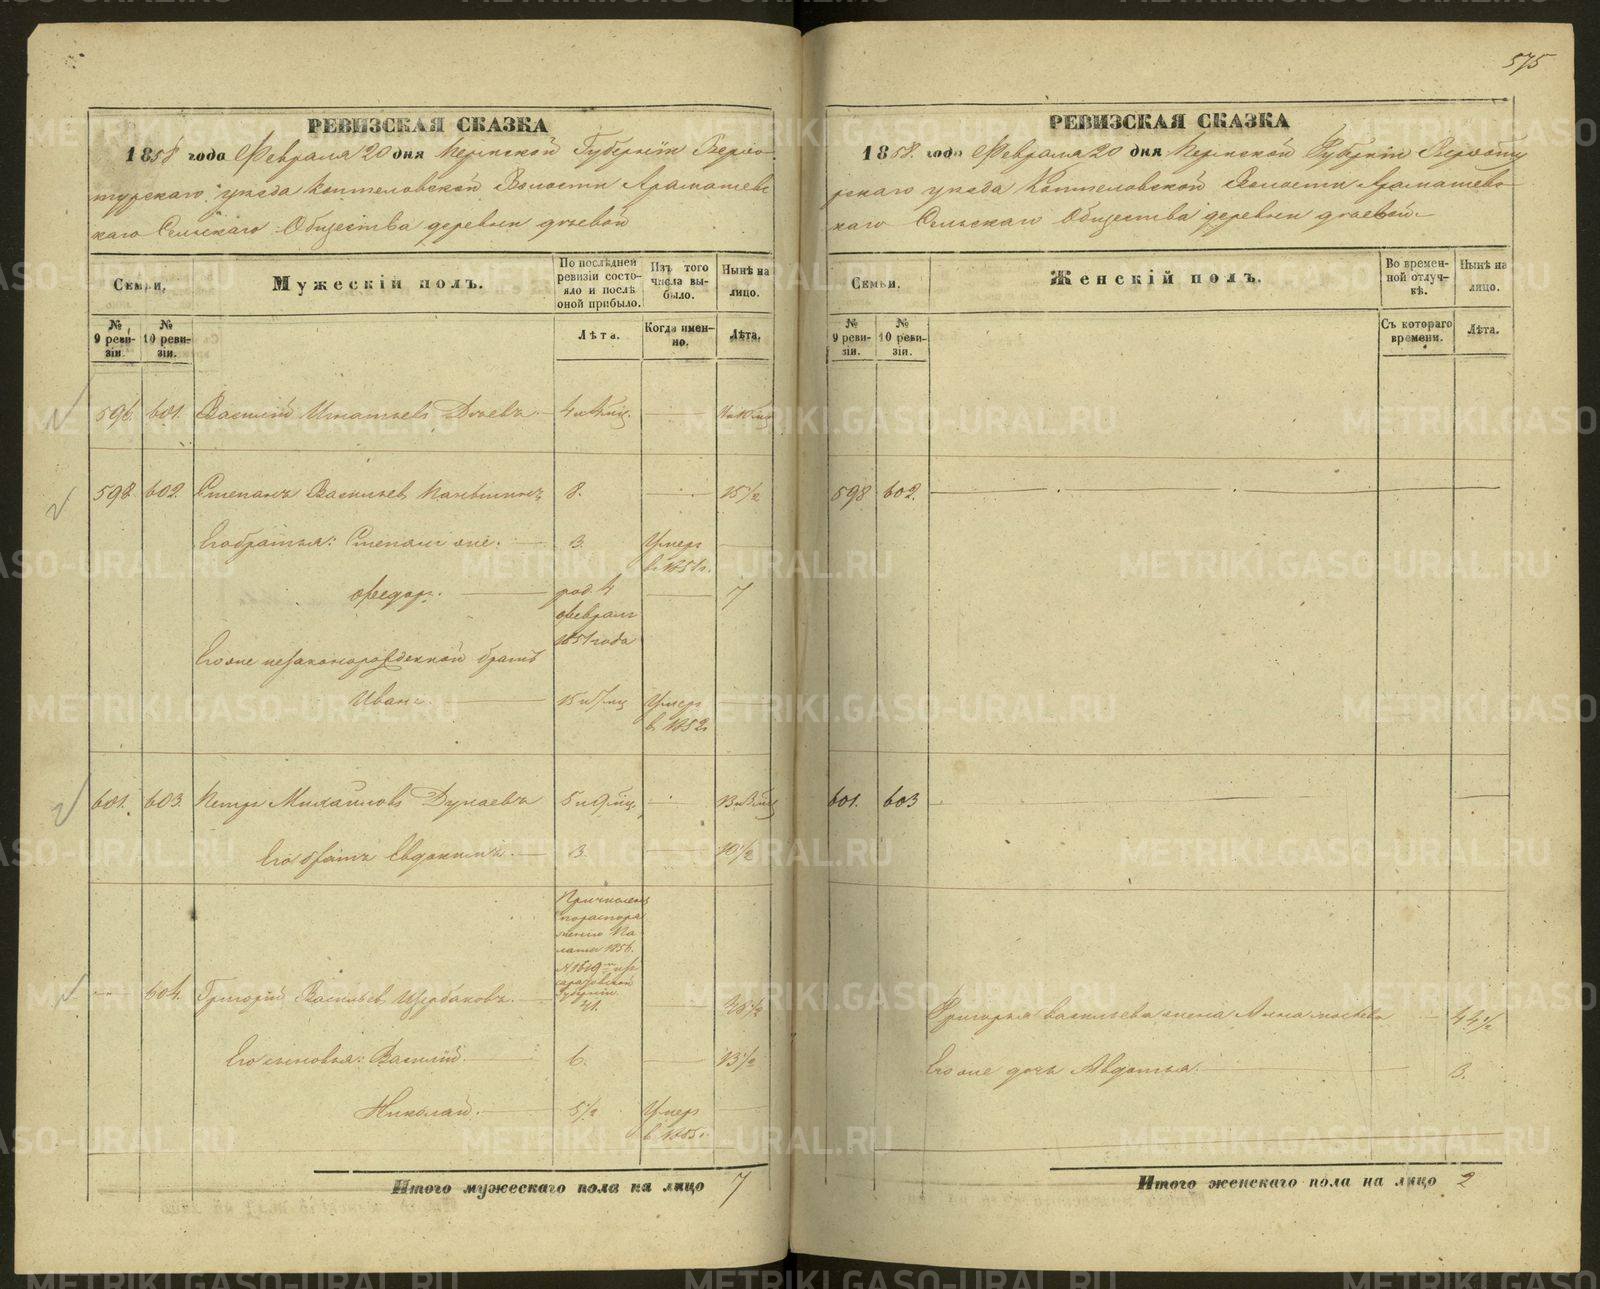 575
РЕВИЗСКАЯ СКАЗКА
1858 года Февраля 20 дня Пермской Губернїи Верхо-
турскаго уѣзда Коптеловской Волости Арамашевс
каго Сельскаго Общества деревни
Семьи.
Мужескій полъ.
По послѣдней ревизіи состояло и послѣ оной прибыло.
Изъ того числа выбыло.
Нынѣ на лицо.
№ 9 ревизіи.
№ 10 ревизіи.
Лѣта.
Когда именно.
Лѣта.
596. 601. Василій Игнатьевъ
598. 602. Степанъ Васильевъ 8. 15 1/2
Его братья: Степанъ же. 3. Умеръ
в 1851 г.
Федоръ. род. 4 7
февраля
1851 года
Его же незаконорожденной братъ
Иванъ. Умеръ
в 1852
601. 603. Петръ Михайловъ Дунаевъ 5 и 9 мц.
Его братъ Евдокимъ. 3. 10 1/2
Причислен
по распоря
жению Па
латы 1856.
№ 1519
саратовской
Губернии
604. Григорій Васильевъ Щербаковъ.
Его сыновья: Василій. 6. 13 1/2
Николай. 5 1/2 Умеръ
в 1855 г.
Итого мужескаго пола на лицо 7
РЕВИЗСКАЯ СКАЗКА
1858. года Февраля 20 дня Пермской Губерніи Верхоту
рскаго уѣзда Коптеловской Волости Арамашевс
каго Сельскаго Общества деревни
Семьи.
Женскій полъ.
Во временной отлучкѣ.
Нынѣ на лицо.
№ 9 ревизіи.
№ 10 ревизіи.
Съ котораго времени.
Лѣта.
598 602.
601. 603
Григорья васильева жена Анна 44 1/2
Его же дочь Авдотья. 3.
Итого женскаго пола на лицо 2
METRIKI.GASO-URAL.RU